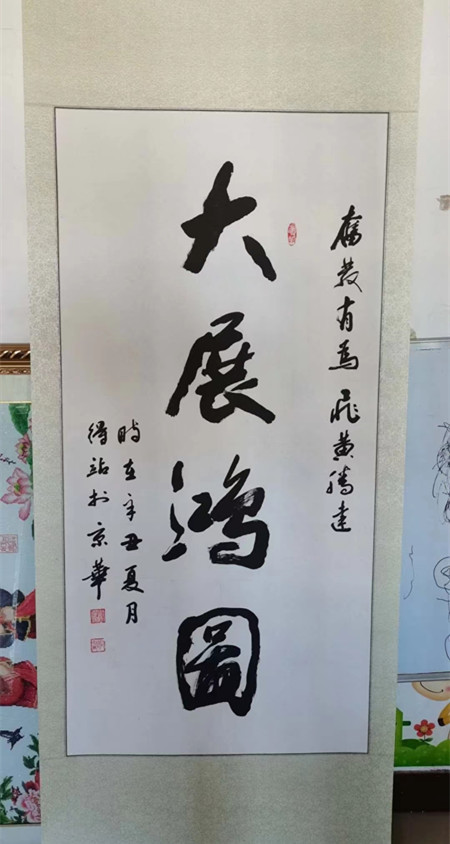 奮發有為飛黃騰達
大展鴻圖
時在辛丑夏月
得站於京華